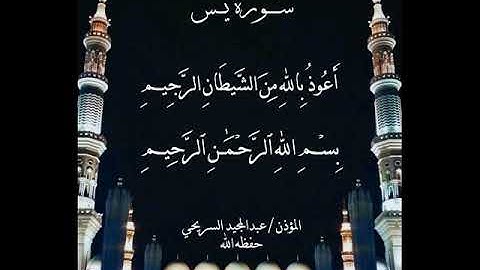 سورة يس
أَعُوذُ بِاللهِ مِنَ الشَّيْطَانِ الرَّجِيمِ
بِسْمِ اللهِ ٱلرَّحْمَٰنِ ٱلرَّحِيمِ
المؤذن/عبدالمجيد السريحي
حفظه الله